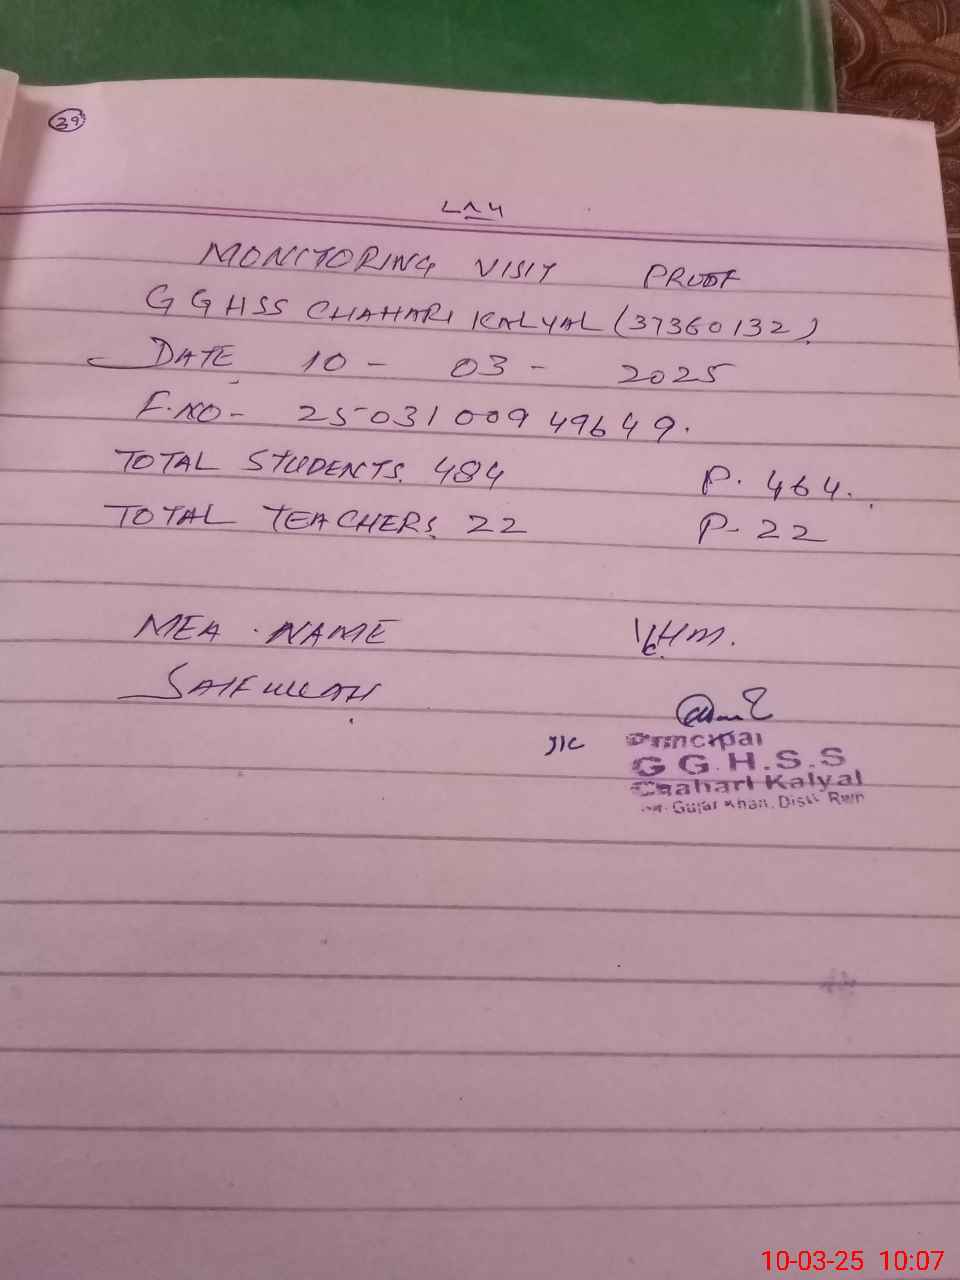 39
MONITORING VISIT PROOF
GGHSS CHAHARI KALYAL (37360132)
DATE 10 - 03 - 2025
F.NO - 2503100949649.
TOTAL STUDENTS. 484 P. 464.
TOTAL TEACHERS. 22 P- 22
MEA. NAME
HM.
SAIFULLAH
Principal
G G.H.S.S
Chahari Kalyal
Gujar Khan. Distt Rwp
10-03-25 10:07